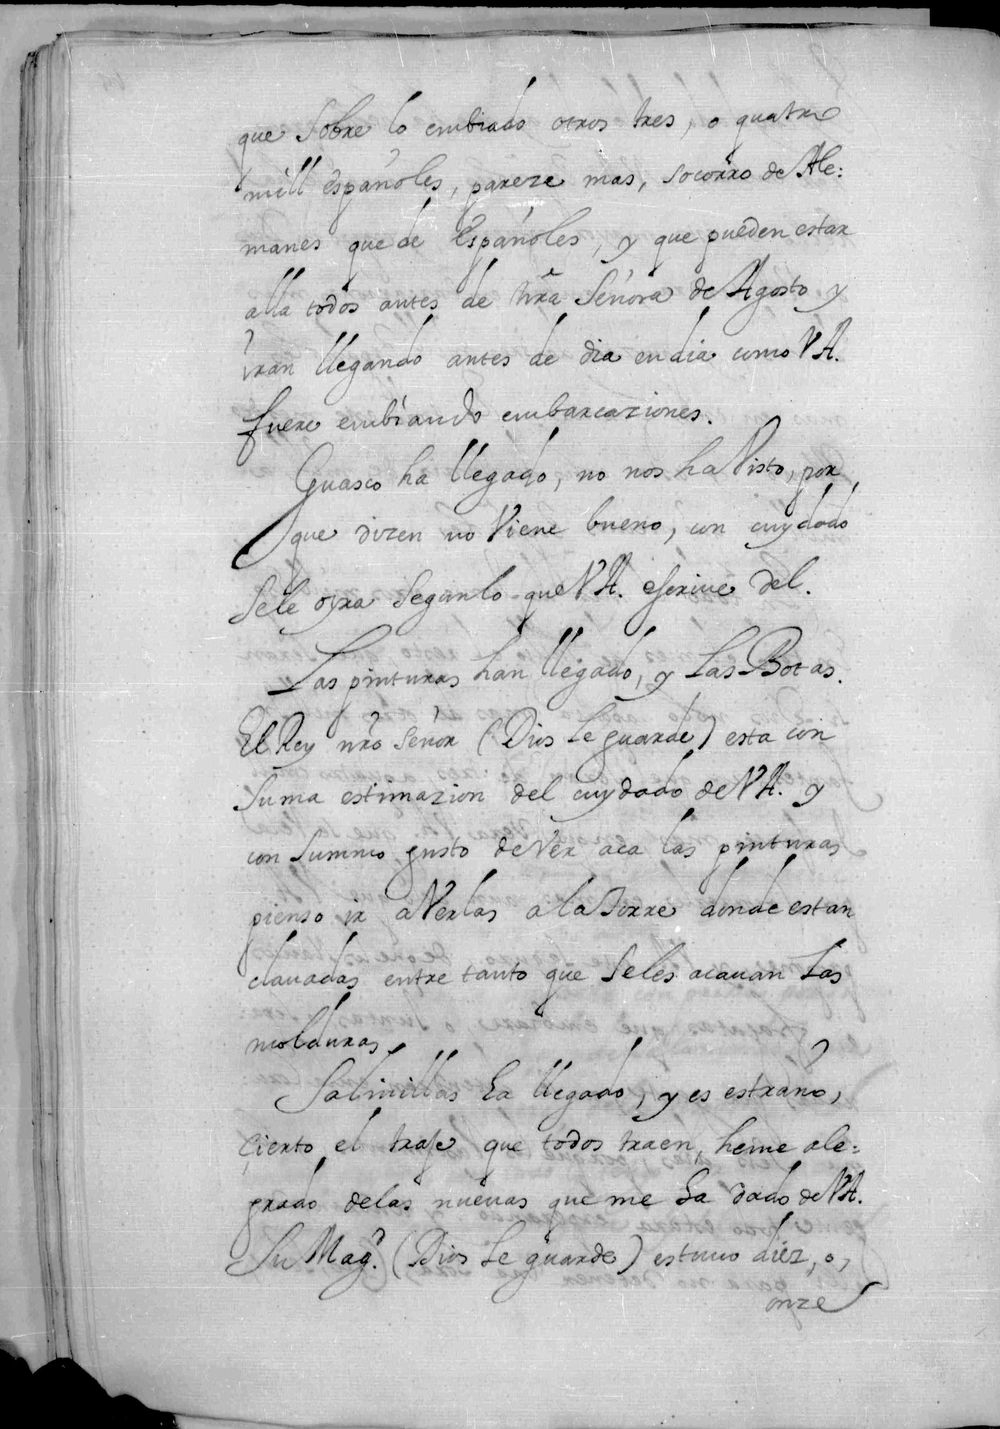 que sobre lo embiado otros tres, o quatro
mill españoles, pareze mas, socorro de Ale:
manes que de Españoles, y que pueden estar
alla todos antes de nra Señora de Agosto y
iran llegando antes de dia en dia como V A.
fuere embiando embarcaziones.
Guasco ha llegado, no nos ha Visto, por
que dizen no Viene bueno, con cuydado
se le oyra segun lo que V A. escriue del.
Las pinturas han llegado, y Las Botas.
El Rey nro Señor (Dios le guarde) esta con
suma estimazion del cuydado de V A. y
con summo gusto de Ver aca las pinturas
pienso ir a Verlas a la Torre donde estan
clauadas entre tanto que se les acauan Las
molduras.
Salinillas ha llegado, y es estraño,
cierto el traje que todos traen, heme ale:
grado de las nueuas que me ha dado de V A.
Su Magd. (Dios le guarde) estuuo diez, o,
onze